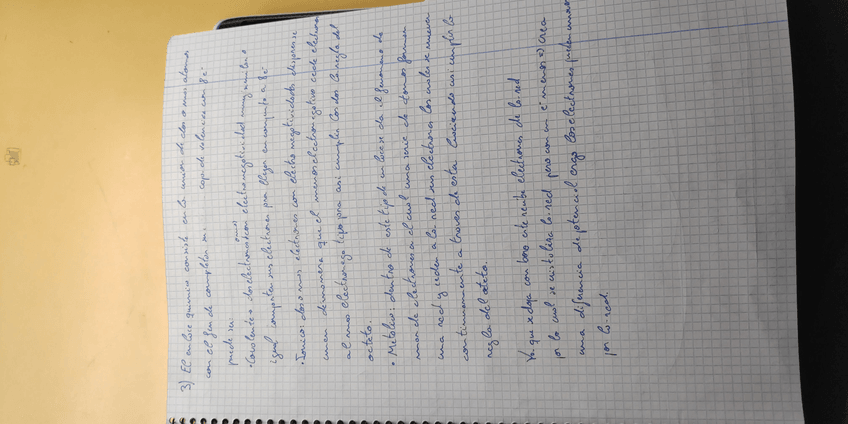 3) El enlace químico consiste en la unión de dos o más átomos
con el fin de completar su capa de valencia con 8 e-
puede ser:
·Covalente: dos o más electrones con electronegatividad muy similar o
igual comparten sus electrones para llegar en conjunto a 8 e-
·Iónico: dos o más electrones con electronegatividades dispares se
unen de manera que el menos electronegativo cede electrones
al más electronegativo para así cumplir los dos la regla del
octeto.
·Metálico: dentro de este tipo de enlace se da el fenómeno de
mar de electrones en el cual una serie de átomos forman
una red y ceden a la red sus electrones los cuales se mueven
continuamente a través de esta haciendo así cumplir la
regla del octeto.
Ya que dopa con boro este resta electrones de la red
por lo cual se cristaliza la red pero con un e- menos crea
una diferencia de potencial ergo los electrones pueden moverse
por la red.